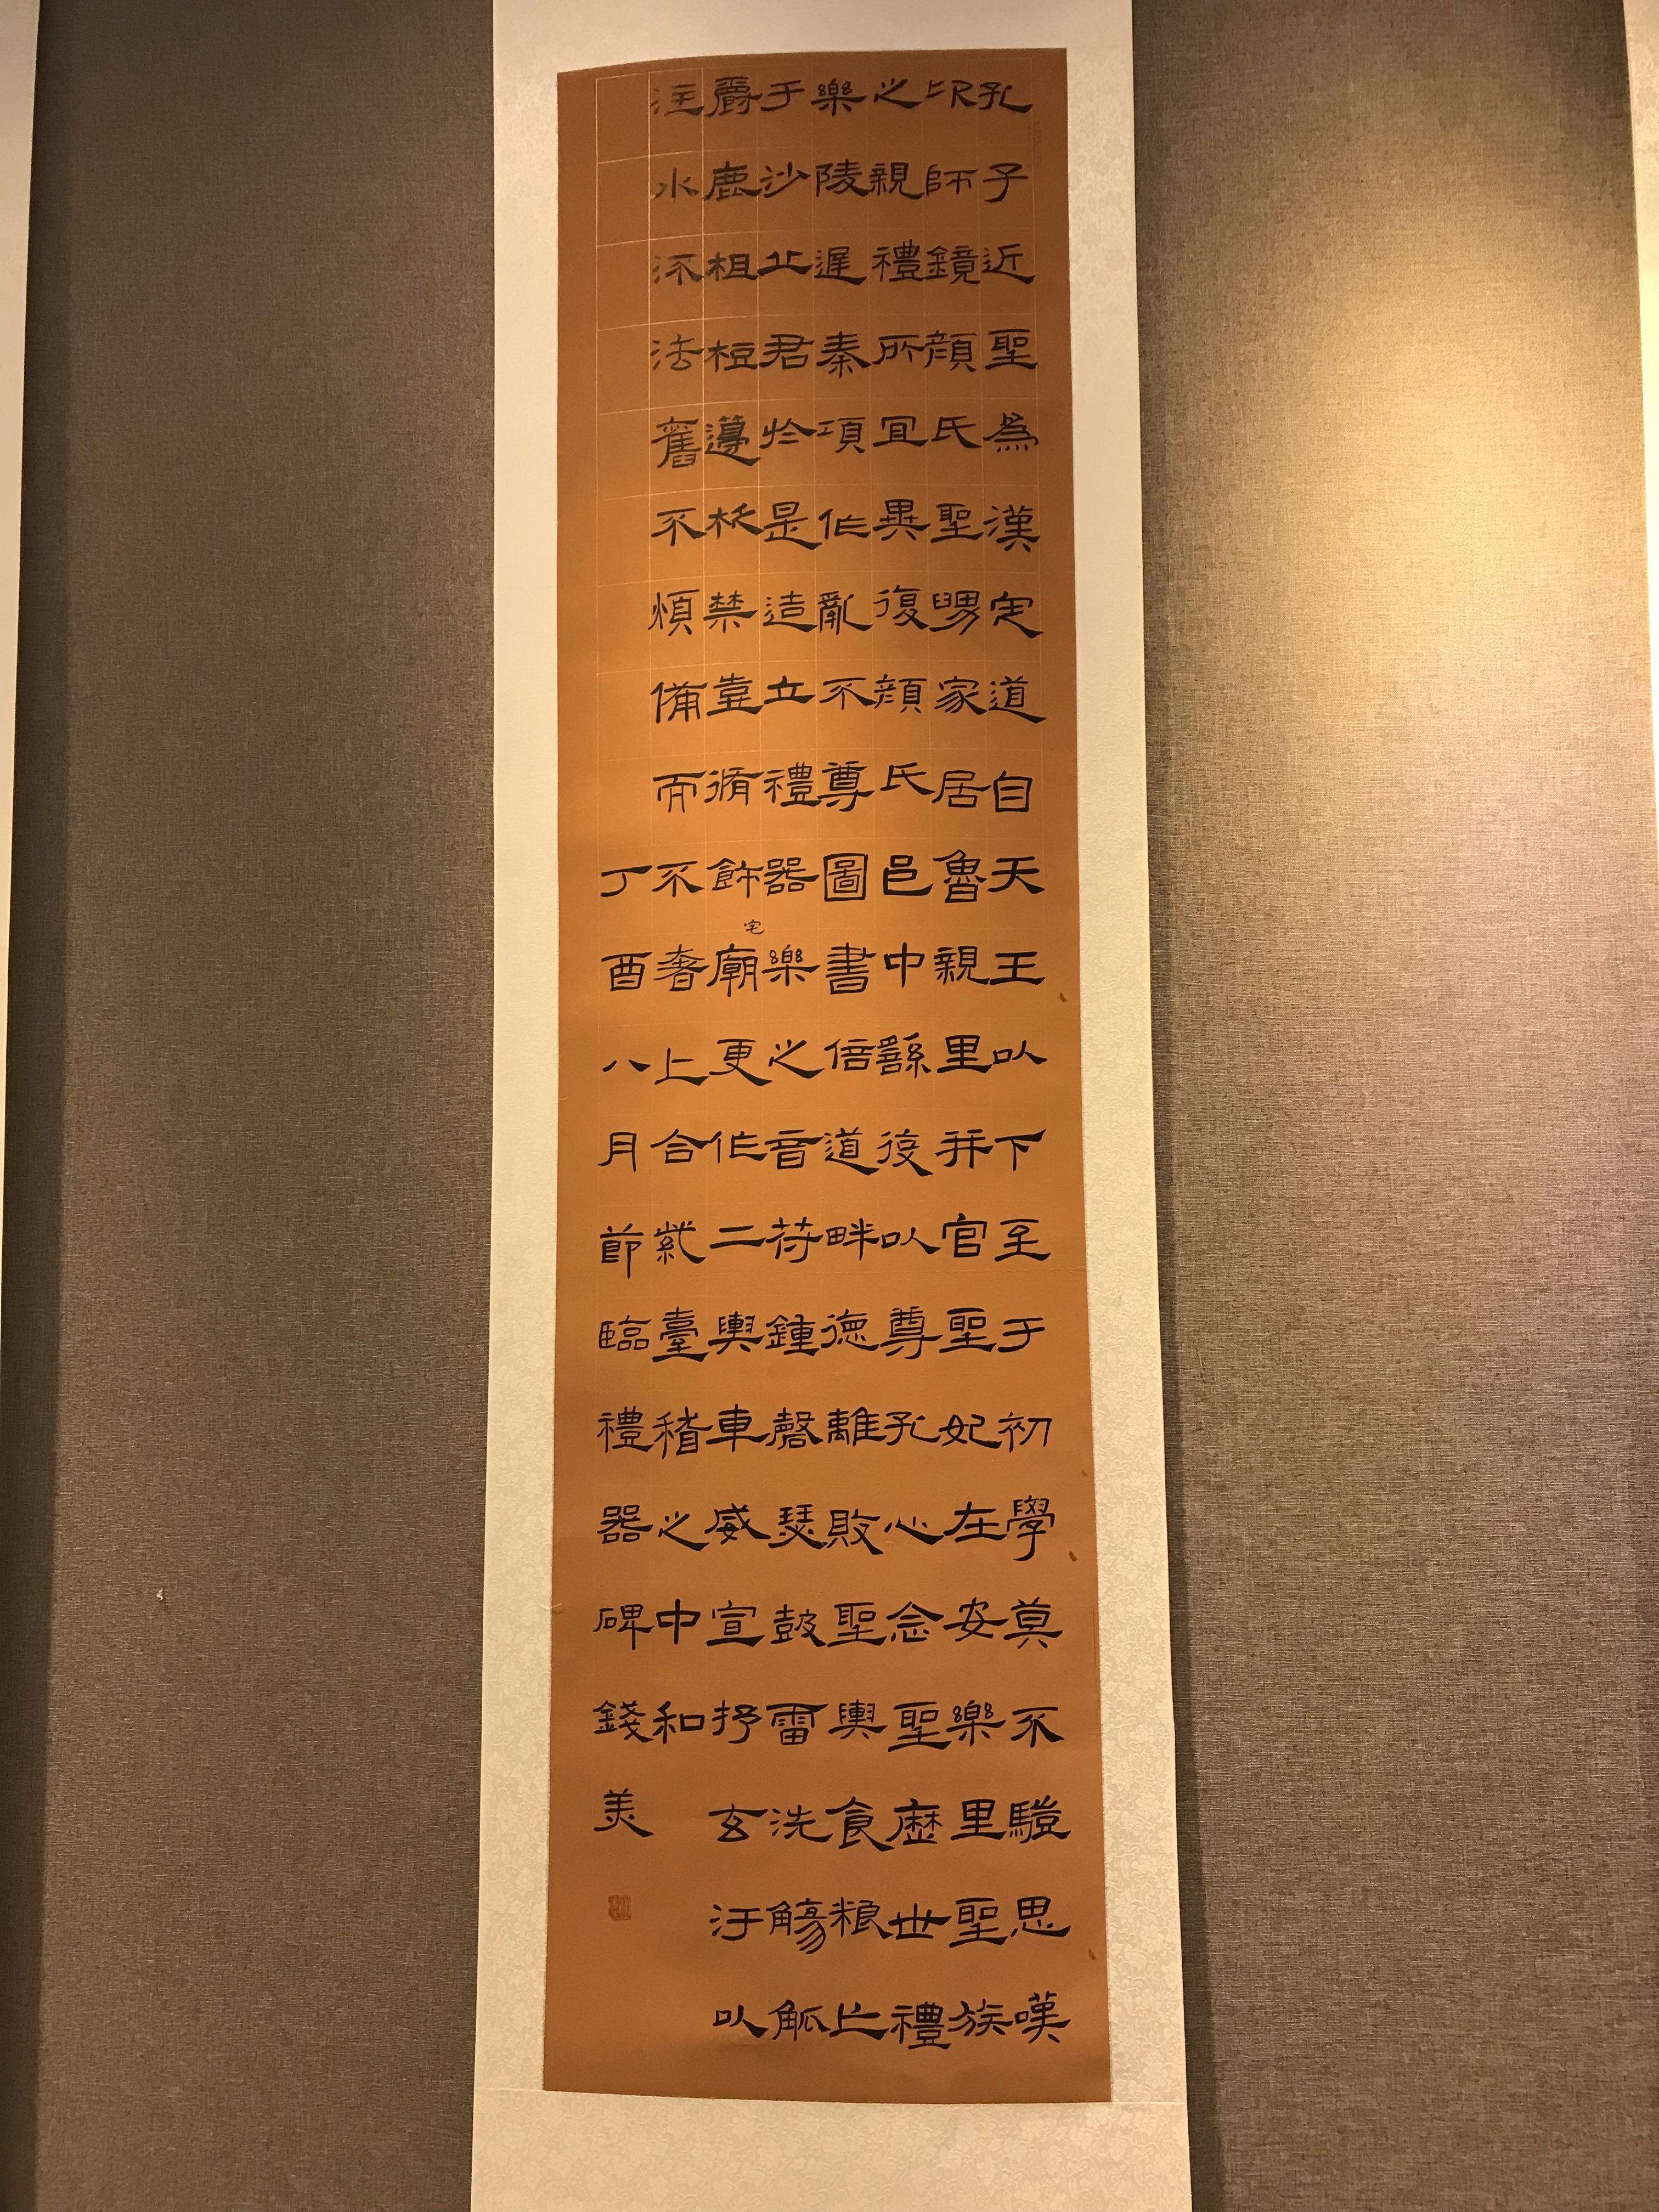 孔子近聖為漢定道自天王以下至于初學莫不驥思嘆
卬師鏡顏氏聖舅家居魯親里并官聖妃在安樂里聖族
之親禮所宜異復顏氏邑中繇發以尊孔心念聖歷世禮
樂陵遲秦項作亂不尊圖書倍道畔德離敗聖輿食糧亡
于沙丘君於是造立禮器樂之音符鍾磬瑟鼓雷洗觴觚
爵鹿柤梪籩柉禁壺脩飾宅廟更作二輿車威宣抒玄汙以
注水流法舊不煩備而不奢上合紫臺稽之中和
丁酉八月節臨禮器碑錢美